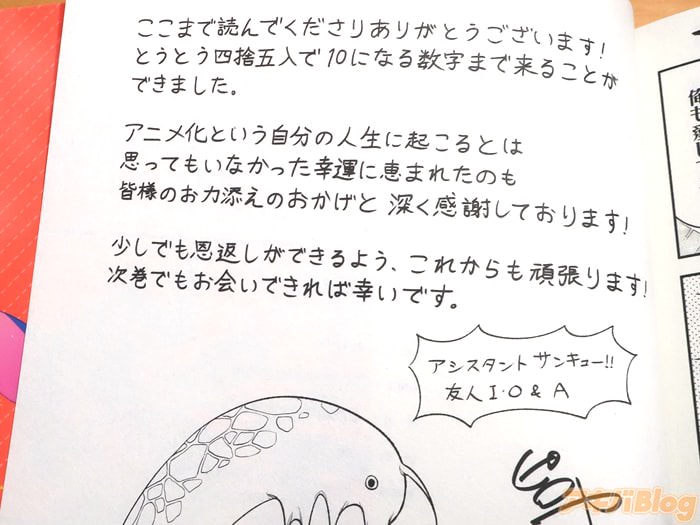 ここまで読んでくださりありがとうございます!
とうとう四捨五入で10になる数字まで来ることが
できました。
アニメ化という自分の人生に起こるとは
思ってもいなかった幸運に恵まれたのも
皆様のお力添えのおかげと 深く感謝しております!
少しでも恩返しができるよう、これからも頑張ります!
次巻でもお会いできれば幸いです。
アシスタント サンキュー!!
友人 I・O & A
アキバBlog